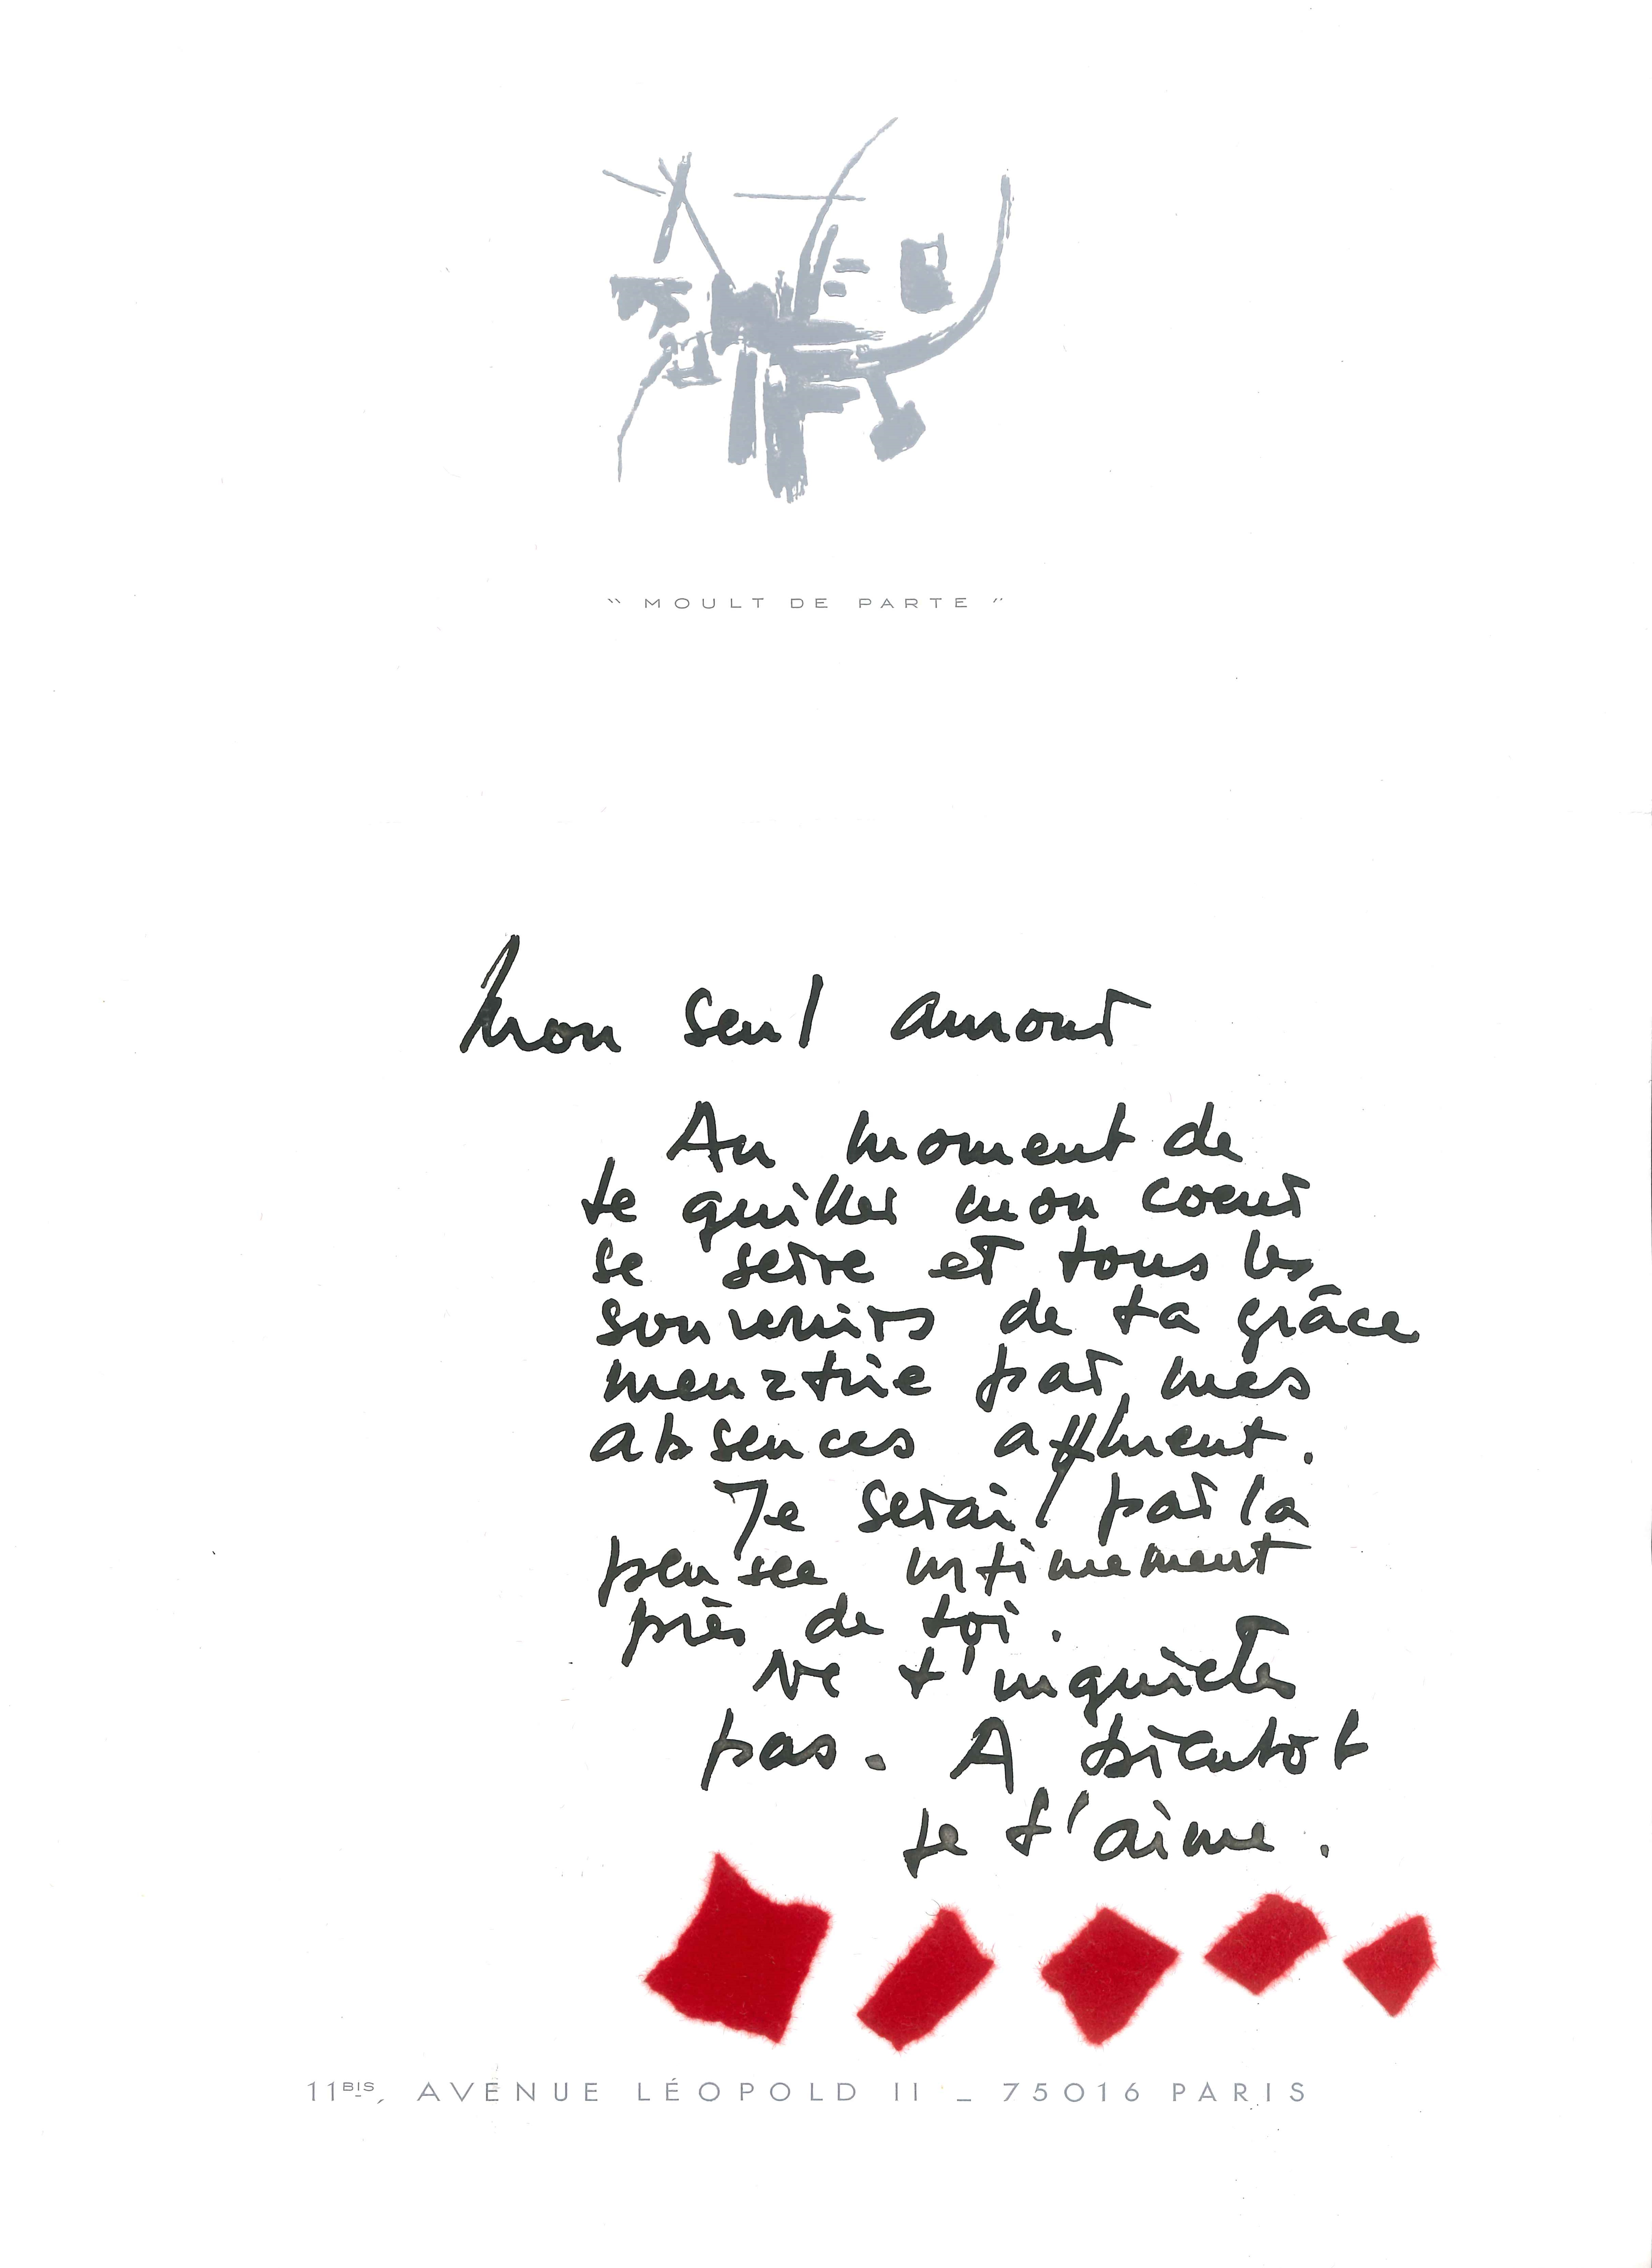 " MOULT DE PARTE "
Mon seul amour
Au moment de
te quitter mon coeur
se serre et tous les
souvenirs de ta grâce
meurtrie par mes
absences affluent.
Je serai par la
pensée intimement
près de toi.
Ne t'inquiètes
pas. A bientot
je t'aime.
11BIS, AVENUE LÉOPOLD II _ 75016 PARIS